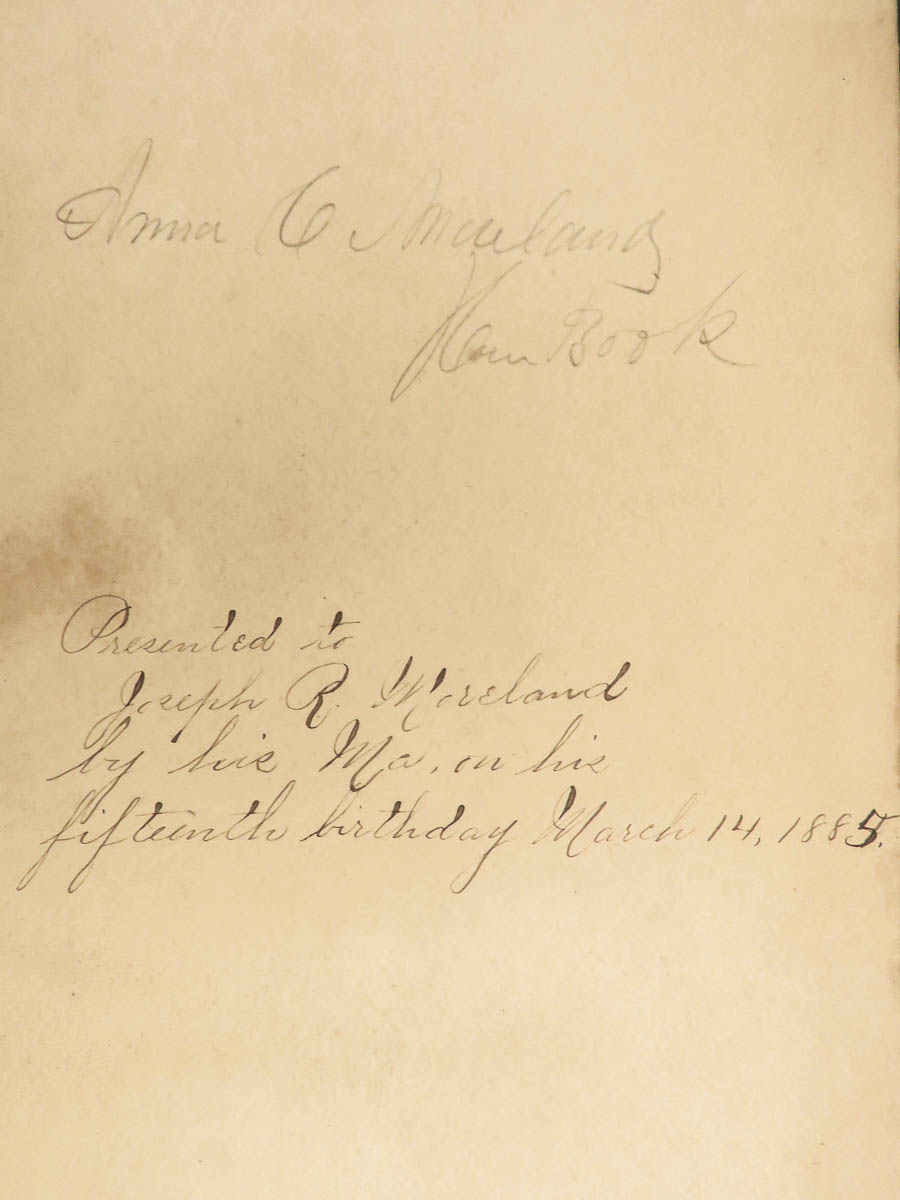 Anna C Moreland
Book
Presented to
Joseph R. Moreland
by his Ma, on his
fifteenth birthday March 14, 1885.